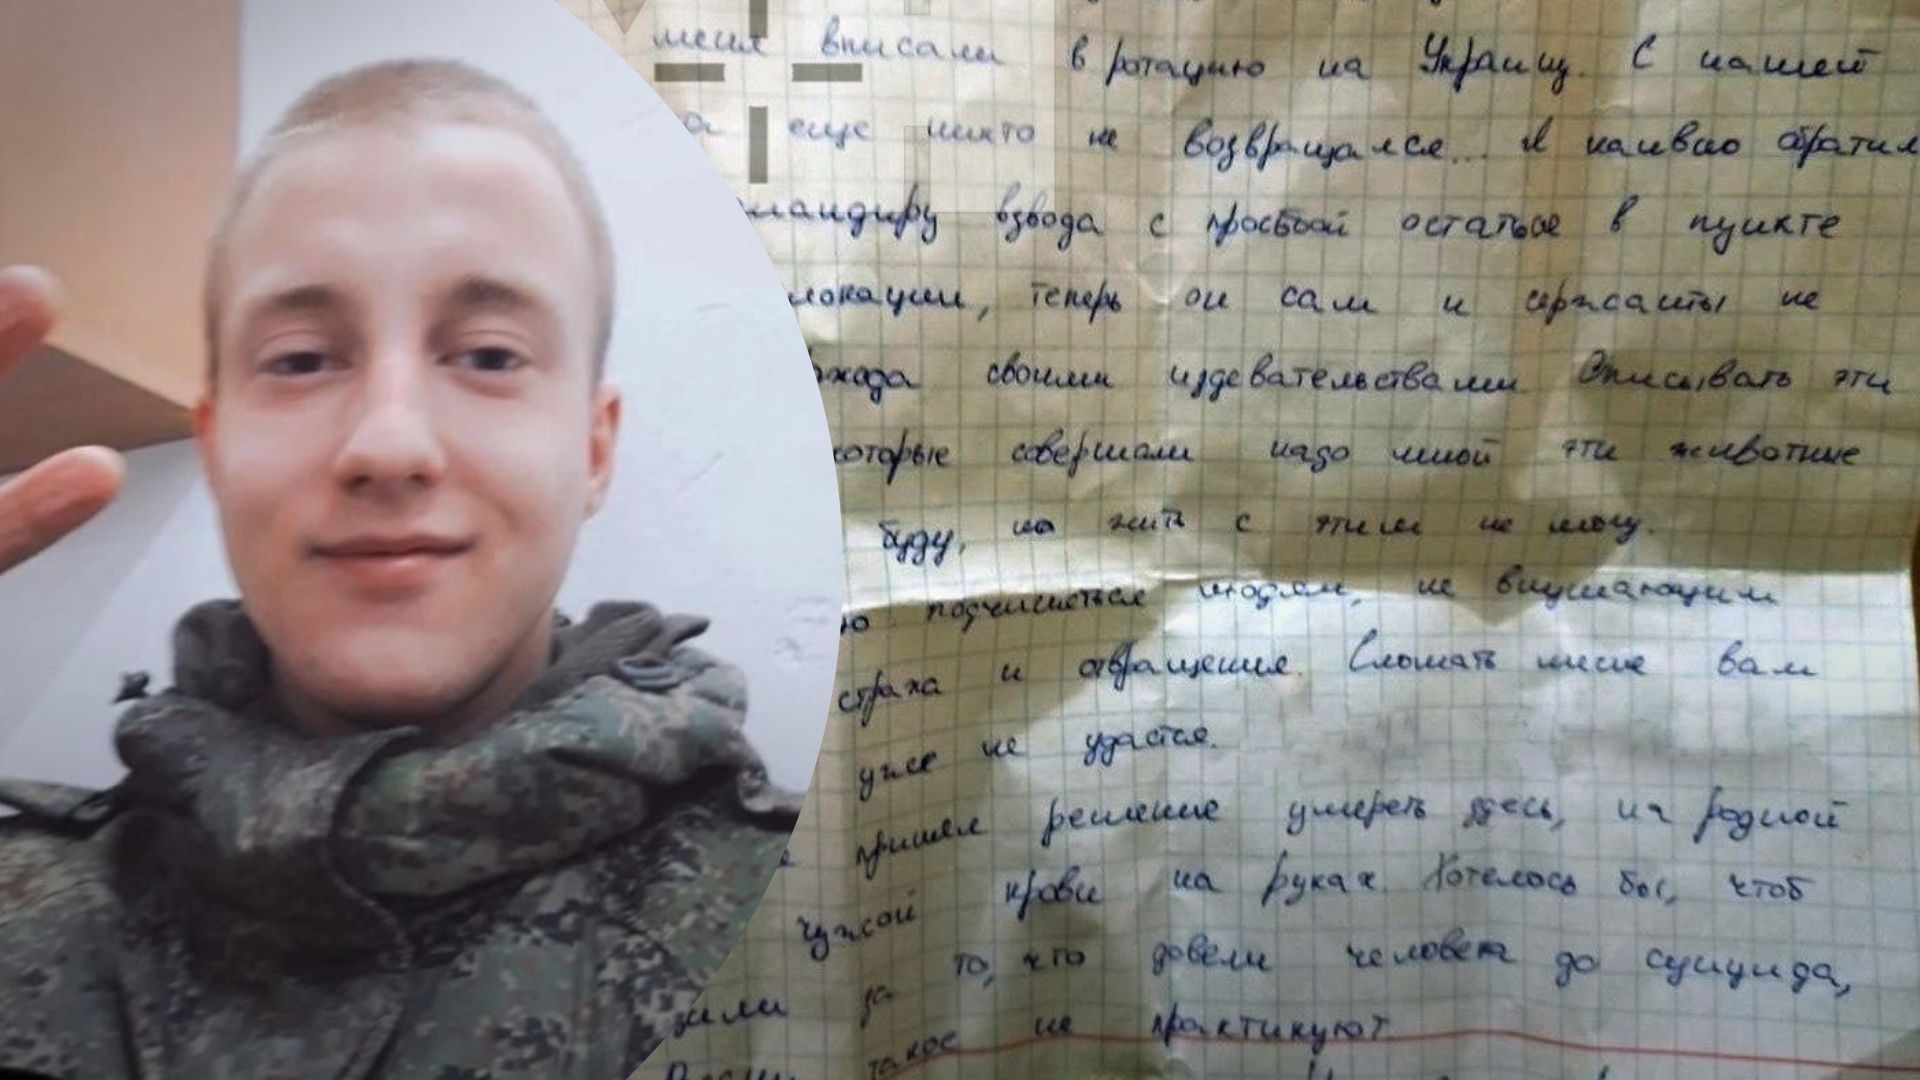 меня вписали в ротацию на Украину. С нашей
а еще никто не возвращался... Я наивно обратил
мандиру взвода с просьбой остаться в пункте
локации, теперь он сам и сержанты не
охода своими издевательствами. Описывать эти
которые совершали надо мной эти животные
буду, но жить с этим не могу.
ю подчиняться людям, не внушающим
страха и отвращения. Сломать меня вам
уже не удастся.
принял решение умереть здесь, на родной
чужой крови на руках. Хотелось бы, чтоб
за то, что довели человека до суицида,
такое не практикуют